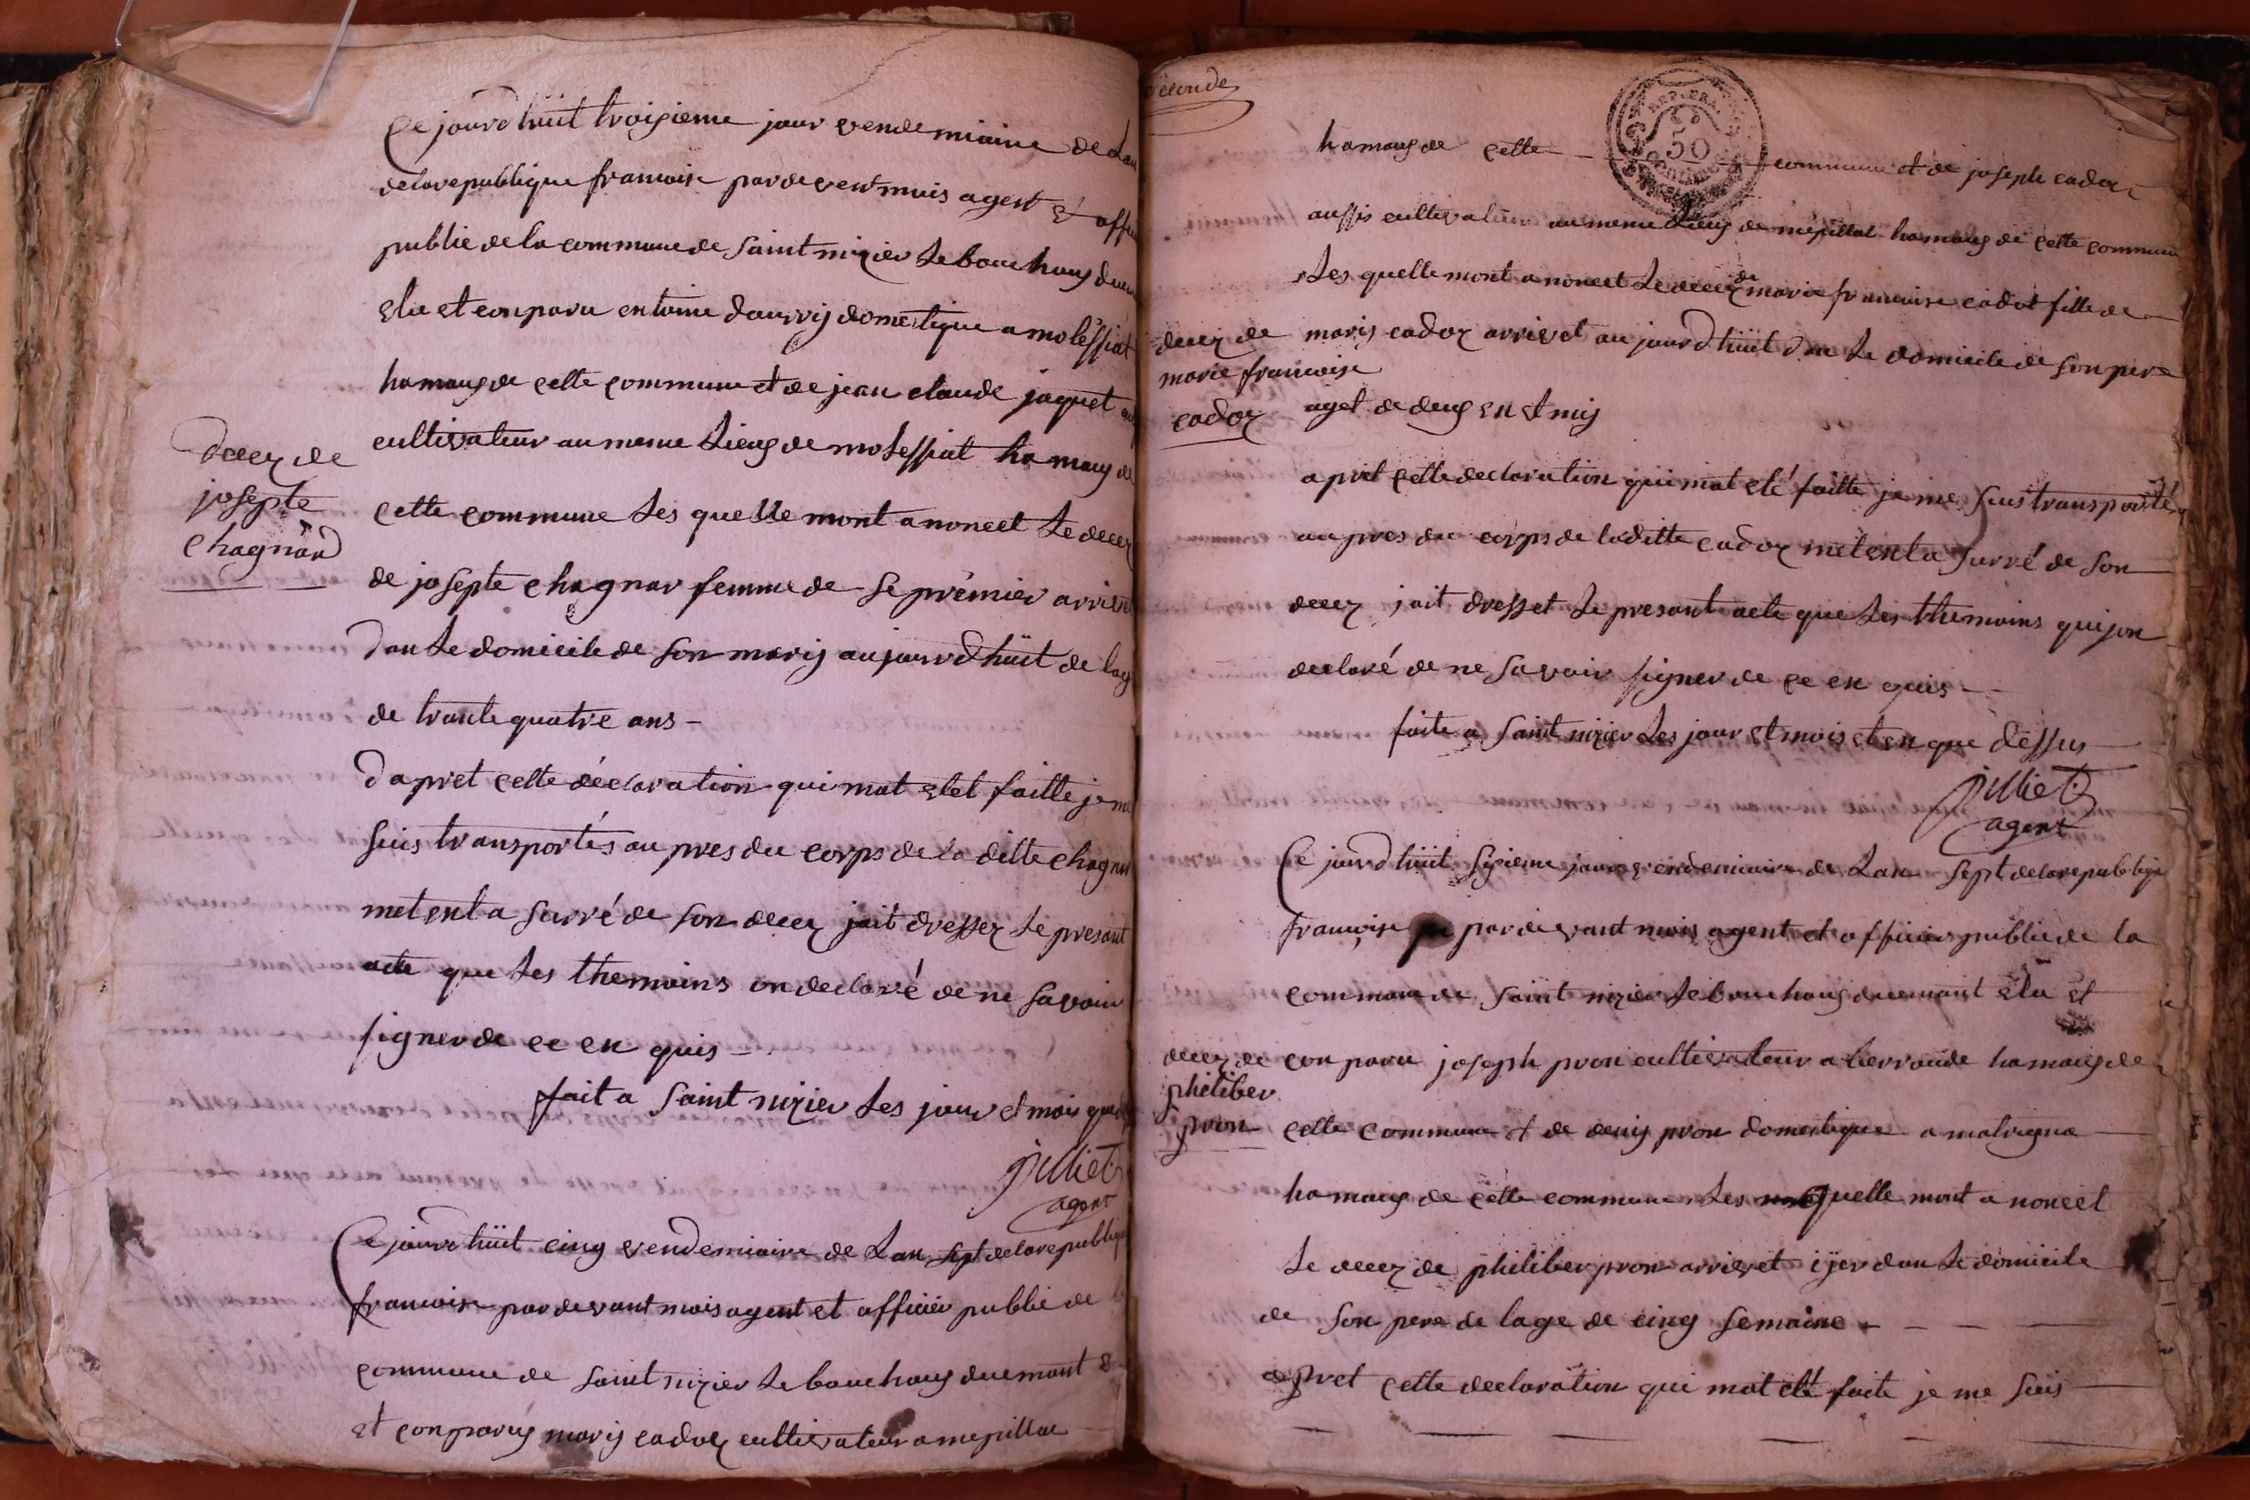 Ce jourd hüit troisieme jour vendemiaire de Lan
delarepublique francoise pardevent mois agent et offi
publie de la commune de Saint nizier Le bouchous duem
elu et conparu entoine dourvij domestique a molessiat
hamaug de cette commune et de jean claude jaquet au
cultivateur au meme Lieug de molessiat hamaug de
Decez de
josepte
Chagnard
cette commune Les quelle mont anoncet Le decez
de josepte Chagnar femme de Se premier arrivet
dan Le domicile de Son marij aujourdhüit de lag
de trante quatre ans -
d apret cette declaration qui mat etet faitte je me
Suis transportés au pres du corps de la ditte Chagnar
metent a Surré de Son decez jait dressez Le presant
acte que Les themoins on declaré de ne Savoir
Signer de ce en quis -
fait a Saint nizier Les jour et mois que
julliet
agent
Ce jourd hüit cinq vendemiaire de Lan Sept delarepublique
francoise pardevant mois agent et officier publie de l
commune de Saint nizier Le bouchous duemant e
et conparuy marij cadoz cultivateur a mepillat
Seconde
REP. FRA
50
hamaug de cette commune et de joseph cadoz
aussis cultivateur au meme Lieug de mepillat hamaug de cette commune
Les quelle mont anoncet Le decez de marie francoise cadot fille de
decez de
marie francoise
cadoz
marij cadoz arrivet au jourdhüit dan Le domicile de Son pere
aget de deug en et mij
apret cette declaration qui mat eté faitte je me Suis transporté
au pres du corps de laditte cadoz metent a Surré de Son
decez jait dresset Le presant acte que Les themoins quij on
declaré de ne Savoir Signer de ce en quis -
faite a Saint nizier Les jour et mois et en que dessus
julliet
agent
Ce jourd hüit Sizieme jour vendemiaire de Lan Sept delarepublique
francoise pardevant mois agent et officier publie de la
commune de Saint nizier Le bouchous duemant elu et
decez de
philiber
pron
conparu joseph pron cultivateur a cerraude hamaug de
cette commune et de denij pron domestique a malvigne
hamaug de cette commune Les quelle mont a noncet
Le decez de philiber pron arrivet ijer dan Le domicile
de Son pere de lage de cinq Semaine
apret cette declaration qui mat eté faite je me Suis